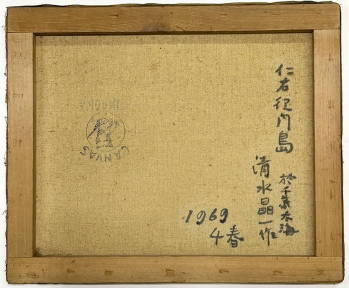 仁右衛門島
於千葉太海
清水晶一作
1969
4春
CANVAS